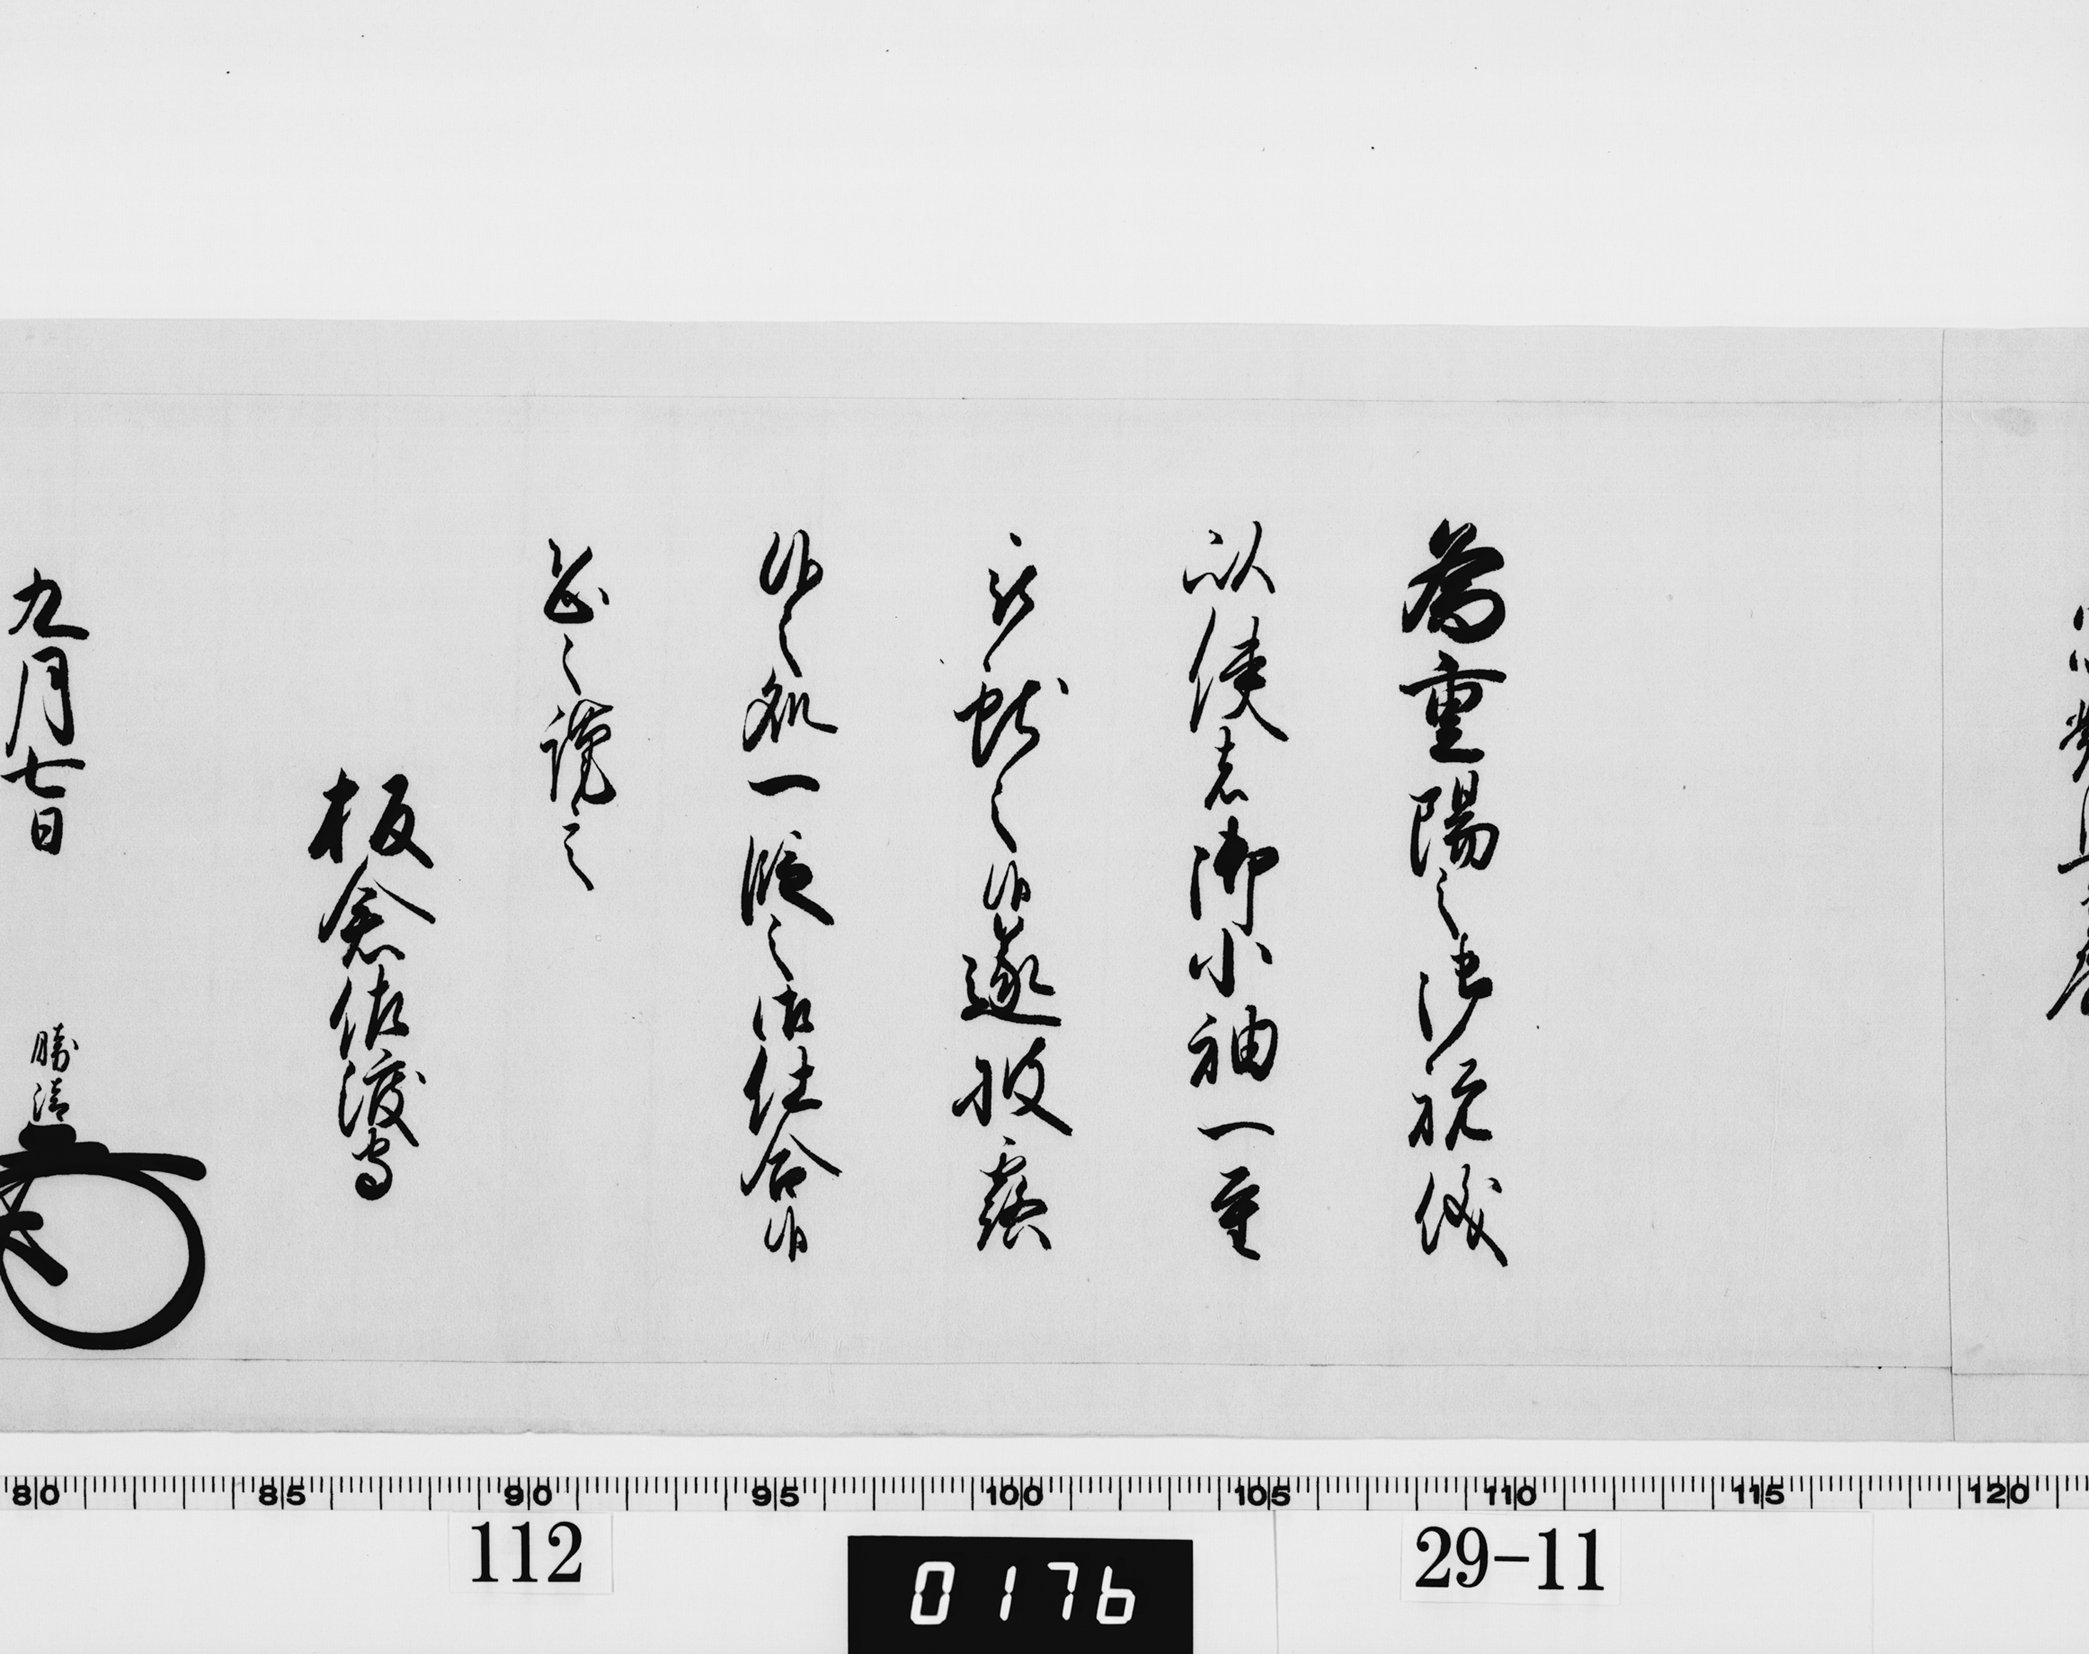 為重陽之御祝儀
以使者御小袖一重
被献之候遂披露
候之処一段之御仕合候
恐々謹言
板倉佐渡守
九月七日
勝清
80 85 90 95 100 105 110 115 120
112
0176
29-11